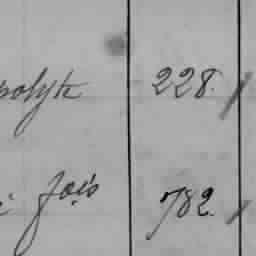 polyte 228.
fois 782.